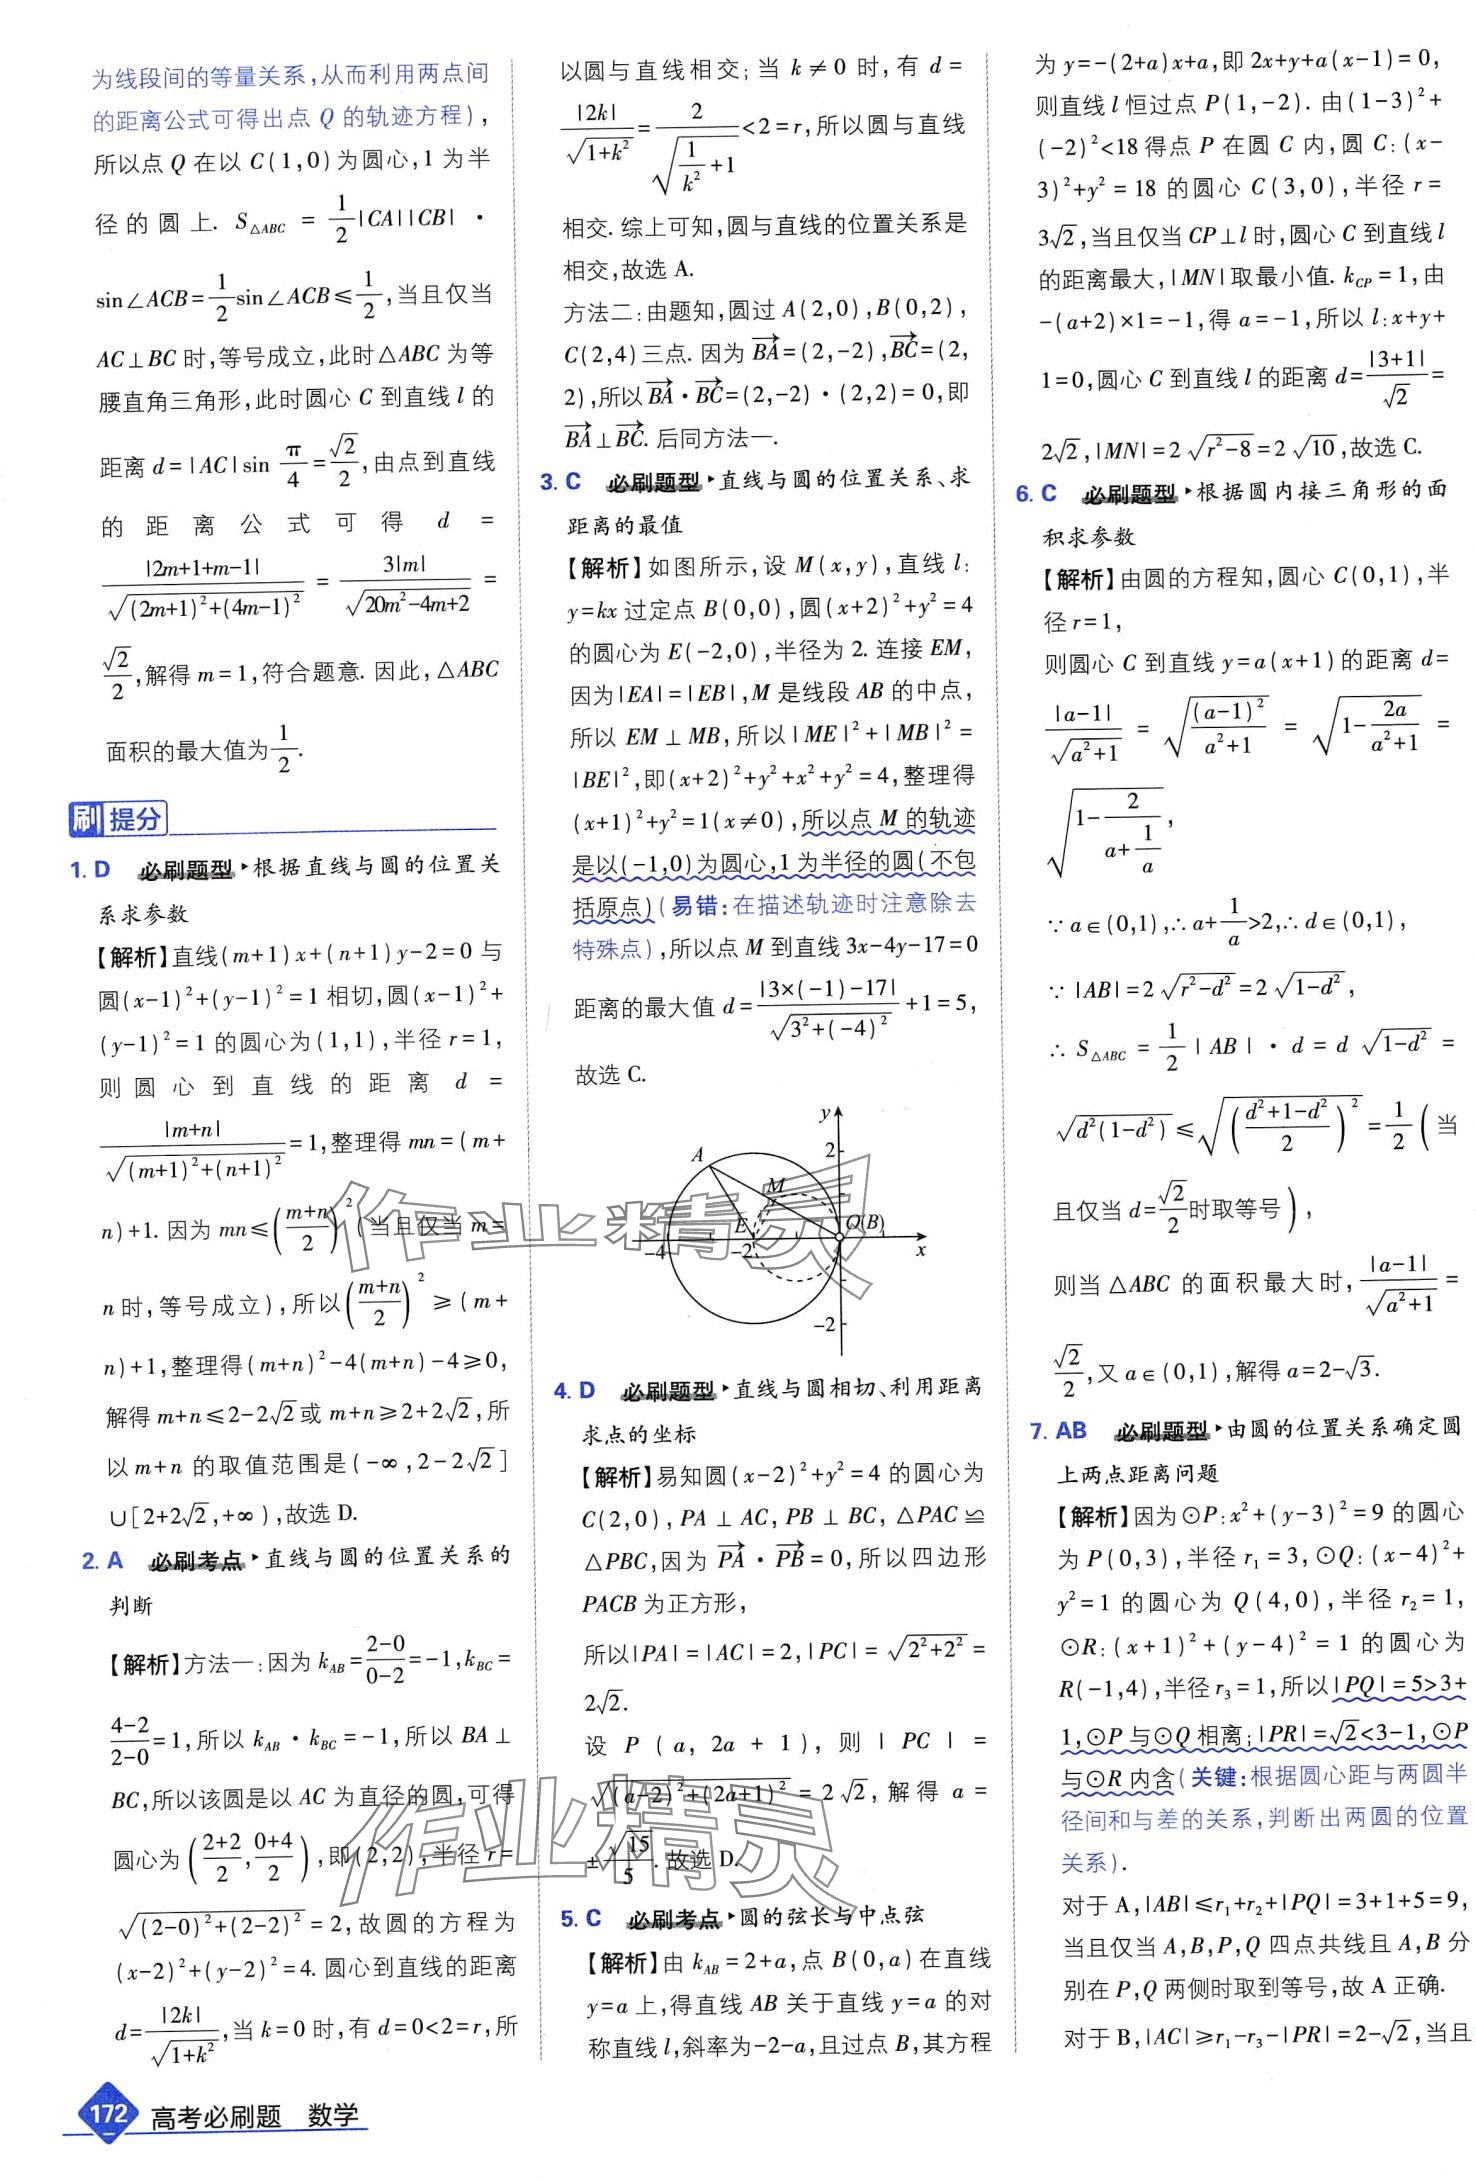 为线段间的等量关系,从而利用两点间
的距离公式可得出点 Q 的轨迹方程),
所以点 Q 在以 C(1,0)为圆心,1 为半
径的圆上. S△ABC = 1/2|CA||CB|·
sin∠ACB=1/2 sin∠ACB≤1/2,当且仅当
AC⊥BC 时,等号成立,此时△ABC 为等
腰直角三角形,此时圆心 C 到直线 l 的
距离 d=|AC|sin π/4=√2/2,由点到直线
的距离公式可得 d=
|2m+1+m-1|/√((2m+1)²+(4m-1)²) = 3|m|/√(20m²-4m+2) =
√2/2,解得 m=1,符合题意. 因此,△ABC
面积的最大值为1/2.
刷 提分
1. D 必刷题型 根据直线与圆的位置关
系求参数
【解析】直线(m+1)x+(n+1)y-2=0 与
圆(x-1)²+(y-1)²=1 相切,圆(x-1)²+
(y-1)²=1 的圆心为(1,1),半径 r=1,
则圆心到直线的距离 d=
|m+n|/√((m+1)²+(n+1)²)=1,整理得 mn=(m+
n)+1. 因为 mn≤((m+n)/2)²(当且仅当 m=
n 时,等号成立),所以((m+n)/2)²≥(m+
n)+1,整理得(m+n)²-4(m+n)-4≥0,
解得 m+n≤2-2√2或 m+n≥2+2√2,所
以 m+n 的取值范围是(-∞,2-2√2]
∪[2+2√2,+∞),故选 D.
2. A 必刷考点 直线与圆的位置关系的
判断
【解析】方法一:因为 kAB=(2-0)/(0-2)=-1,kBC=
(4-2)/(2-0)=1,所以 kAB·kBC=-1,所以 BA⊥
BC,所以该圆是以 AC 为直径的圆,可得
圆心为((2+2)/2,(0+4)/2),即(2,2),半径 r=
√((2-0)²+(2-2)²)=2,故圆的方程为
(x-2)²+(y-2)²=4. 圆心到直线的距离
d=|2k|/√(1+k²),当 k=0 时,有 d=0<2=r,所
172 高考必刷题 数学
以圆与直线相交;当 k≠0 时,有 d=
|2k|/√(1+k²)=2/√(1/k²+1)<2=r,所以圆与直线
相交. 综上可知,圆与直线的位置关系是
相交,故选 A.
方法二:由题知,圆过 A(2,0),B(0,2),
C(2,4)三点. 因为 BA=(2,-2),BC=(2,
2),所以 BA·BC=(2,-2)·(2,2)=0,即
BA⊥BC. 后同方法一.
3. C 必刷题型 直线与圆的位置关系、求
距离的最值
【解析】如图所示,设 M(x,y),直线 l:
y=kx 过定点 B(0,0),圆(x+2)²+y²=4
的圆心为 E(-2,0),半径为 2. 连接 EM,
因为|EA|=|EB|,M 是线段 AB 的中点,
所以 EM⊥MB,所以|ME|²+|MB|²=
|BE|²,即(x+2)²+y²+x²+y²=4,整理得
(x+1)²+y²=1(x≠0),所以点 M 的轨迹
是以(-1,0)为圆心,1 为半径的圆(不包
括原点)(易错:在描述轨迹时注意除去
特殊点),所以点 M 到直线 3x-4y-17=0
距离的最大值 d=|3×(-1)-17|/√(3²+(-4)²)+1=5,
故选 C.
y
A
2
M
E
O(B)
-4
-2
x
-2
4. D 必刷题型 直线与圆相切、利用距离
求点的坐标
【解析】易知圆(x-2)²+y²=4 的圆心为
C(2,0),PA⊥AC,PB⊥BC,△PAC≌
△PBC,因为 PA·PB=0,所以四边形
PACB 为正方形,
所以|PA|=|AC|=2,|PC|=√(2²+2²)=
2√2.
设 P(a,2a+1),则|PC|=
√((a-2)²+(2a+1)²)=2√2,解得 a=
±√15/5. 故选 D.
5. C 必刷考点 圆的弦长与中点弦
【解析】由 kAB=2+a,点 B(0,a)在直线
y=a 上,得直线 AB 关于直线 y=a 的对
称直线 l,斜率为-2-a,且过点 B,其方程
为 y=-(2+a)x+a,即 2x+y+a(x-1)=0,
则直线 l 恒过点 P(1,-2). 由(1-3)²+
(-2)²<18 得点 P 在圆 C 内,圆 C:(x-
3)²+y²=18 的圆心 C(3,0),半径 r=
3√2,当且仅当 CP⊥l 时,圆心 C 到直线 l
的距离最大,|MN|取最小值. kCP=1,由
-(a+2)×1=-1,得 a=-1,所以 l:x+y+
1=0,圆心 C 到直线 l 的距离 d=|3+1|/√2=
2√2,|MN|=2√(r²-8)=2√10,故选 C.
6. C 必刷题型 根据圆内接三角形的面
积求参数
【解析】由圆的方程知,圆心 C(0,1),半
径 r=1,
则圆心 C 到直线 y=a(x+1)的距离 d=
|a-1|/√(a²+1) = √((a-1)²/(a²+1)) = √(1-2a/(a²+1)) =
√(1-2/(a+1/a)),
∵a∈(0,1),∴a+1/a>2,∴d∈(0,1),
∵|AB|=2√(r²-d²)=2√(1-d²),
∴S△ABC=1/2|AB|·d=d√(1-d²)=
√(d²(1-d²))≤√(((d²+1-d²)/2)²)=1/2(当
且仅当 d=√2/2时取等号),
则当△ABC 的面积最大时,|a-1|/√(a²+1)=
√2/2,又 a∈(0,1),解得 a=2-√3.
7. AB 必刷题型 由圆的位置关系确定圆
上两点距离问题
【解析】因为⊙P:x²+(y-3)²=9 的圆心
为 P(0,3),半径 r₁=3,⊙Q:(x-4)²+
y²=1 的圆心为 Q(4,0),半径 r₂=1,
⊙R:(x+1)²+(y-4)²=1 的圆心为
R(-1,4),半径 r₃=1,所以|PQ|=5>3+
1,⊙P 与⊙Q 相离;|PR|=√2<3-1,⊙P
与⊙R 内含(关键:根据圆心距与两圆半
径间和与差的关系,判断出两圆的位置
关系).
对于 A,|AB|≤r₁+r₂+|PQ|=3+1+5=9,
当且仅当 A,B,P,Q 四点共线且 A,B 分
别在 P,Q 两侧时取到等号,故 A 正确.
对于 B,|AC|≥r₁-r₃-|PR|=2-√2,当且
作业精灵
作业精灵